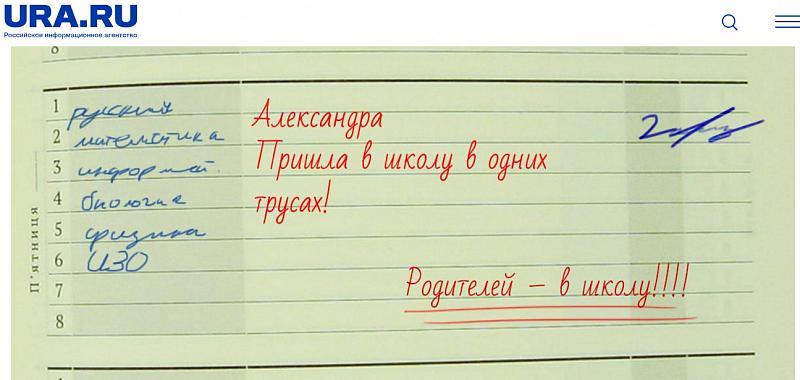 URA.RU
Российское информационное агентство
8
П'ятниця
1 русский
2 математика
3 информат.
4 биология
5 физика
6 ИЗО
7
8
Александра
Пришла в школу в одних
трусах!
Родителей – в школу!!!!